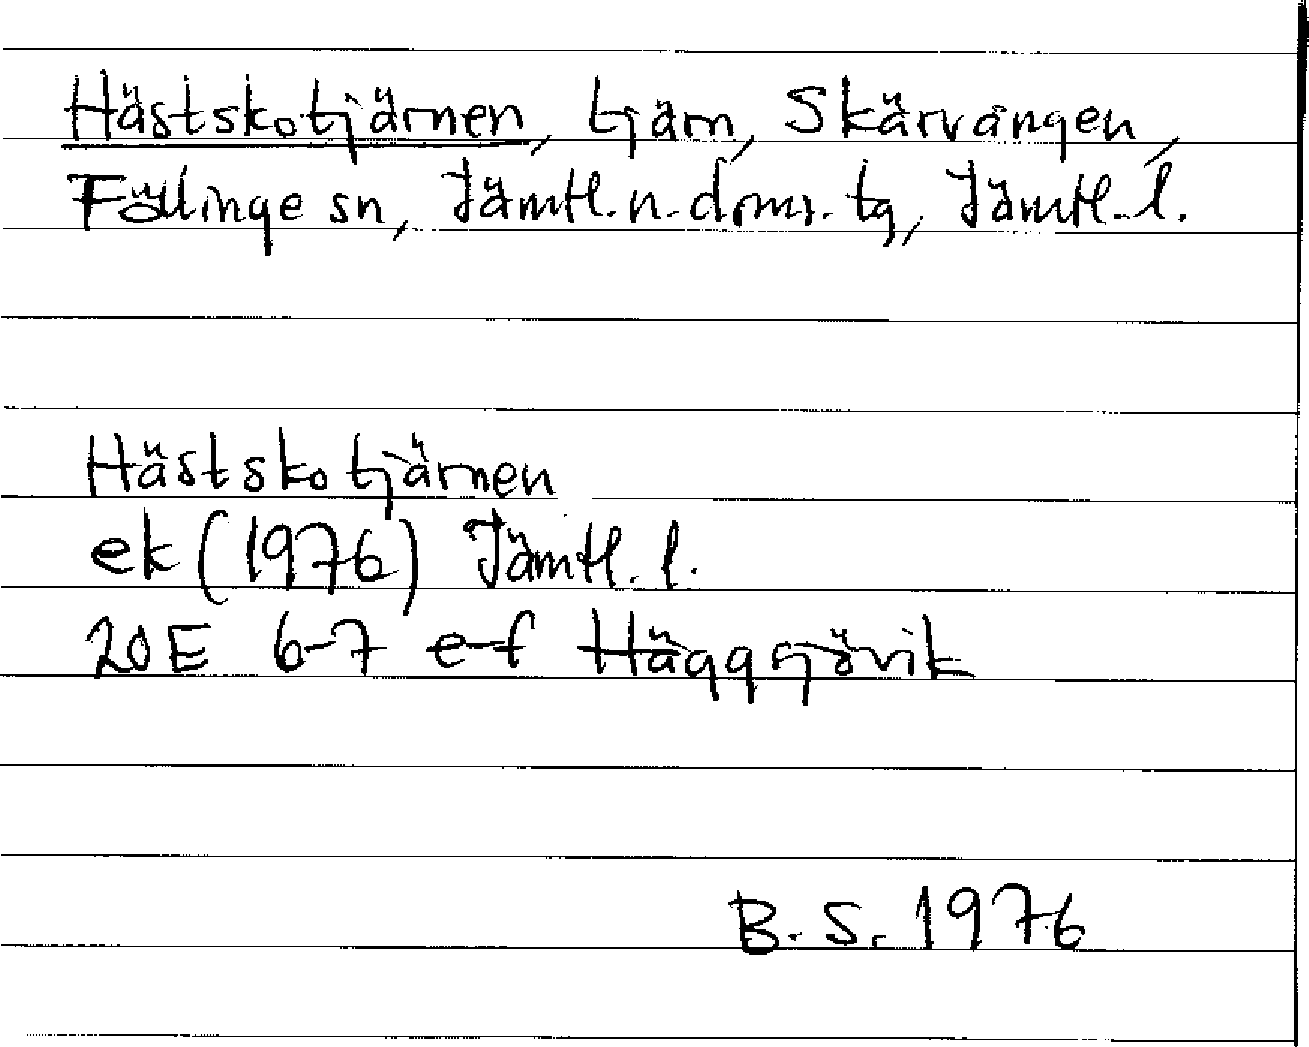 Hästskotjärnen, tjärn, Skärvången,
Föllinge sn, Jämtl. n. doms. tg, Jämtl. l.
Hästskotjärnen
ek (1976) Jämtl. l.
20E 6-7 e-f Häggsjövik
B. S. 1976